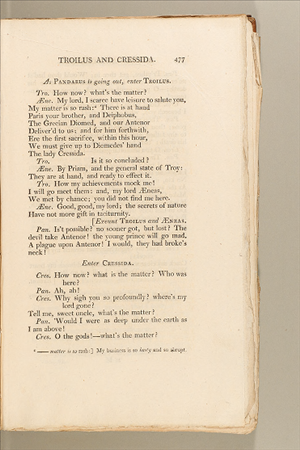 TROILUS AND CRESSIDA. 477
As PANDARUS is going out, enter TROILUS.
Tro. How now? what's the matter?
Æne. My lord, I scarce have leisure to salute you,
My matter is so rash:* There is at hand
Paris your brother, and Deiphobus,
The Grecian Diomed, and our Antenor
Deliver'd to us; and for him forthwith,
Ere the first sacrifice, within this hour,
We must give up to Diomedes' hand
The lady Cressida.
Tro. Is it so concluded?
Æne. By Priam, and the general state of Troy:
They are at hand, and ready to effect it.
Tro. How my achievements mock me!
I will go meet them: and, my lord Æneas,
We met by chance; you did not find me here.
Æne. Good, good, my lord; the secrets of nature
Have not more gift in taciturnity.
[Exeunt TROILUS and ÆNEAS.
Pan. Is't possible? no sooner got, but lost? The
devil take Antenor! the young prince will go mad.
A plague upon Antenor! I would, they had broke's
neck!
Enter CRESSIDA.
Cres. How now? what is the matter? Who was
here?
Pan. Ah, ah!
Cres. Why sigh you so profoundly? where's my
lord gone?
Tell me, sweet uncle, what's the matter?
Pan. 'Would I were as deep under the earth as
I am above!
Cres. O the gods!—what's the matter?
* —— matter is so rash:] My business is so hasty and so abrupt.